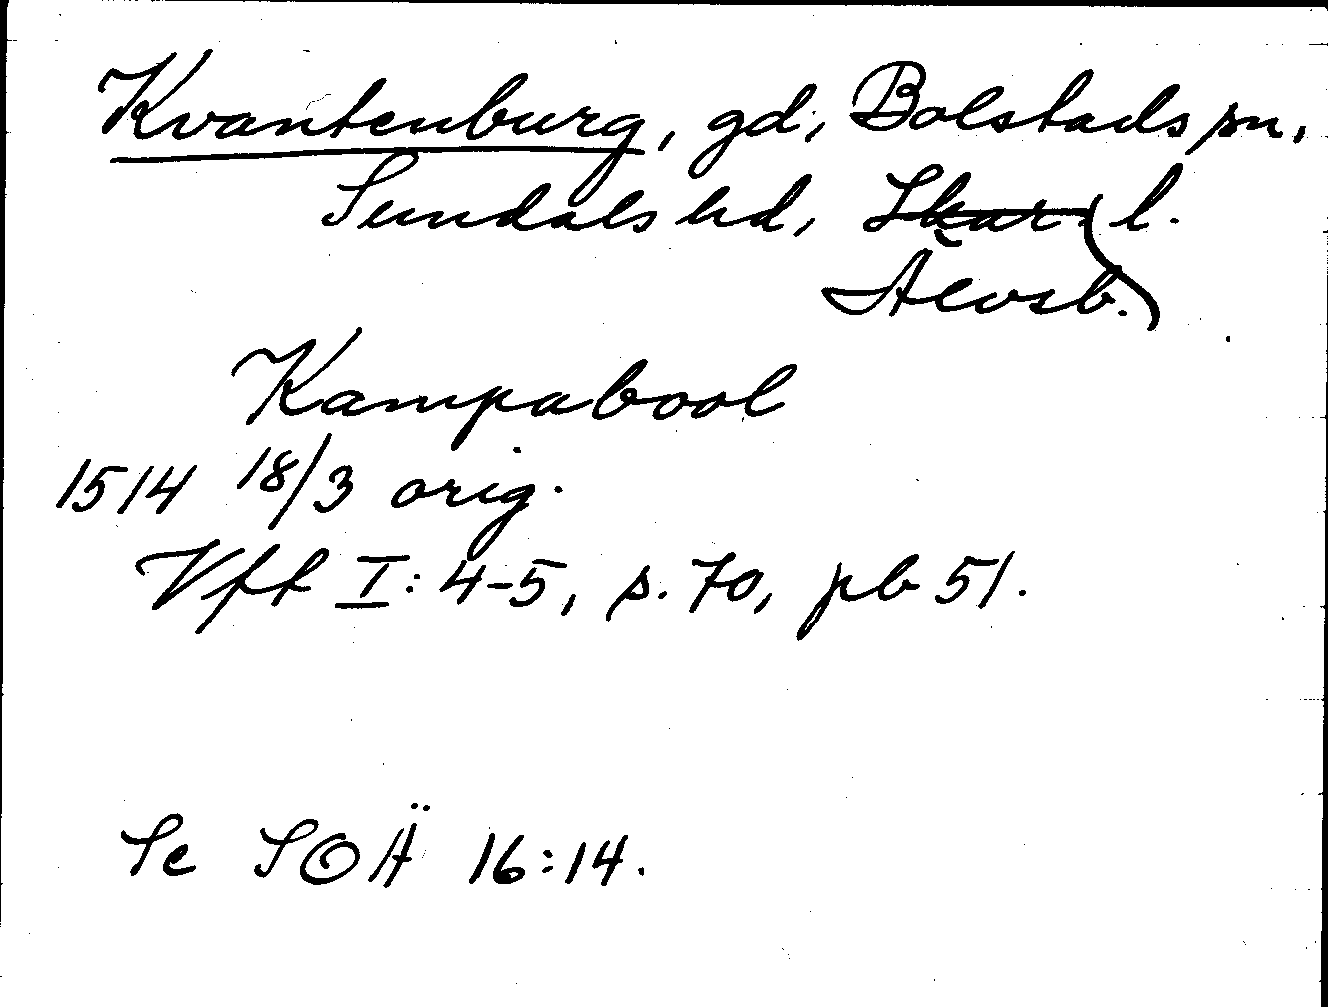 Kvantenburg, gd, Bolstads sn,
Sundals hd, Skar. l.
Älvsb.
Kampabool
1514 18/3 orig.
Vft I: 4-5, s. 70, pb 51.
Se SOÄ 16:14.